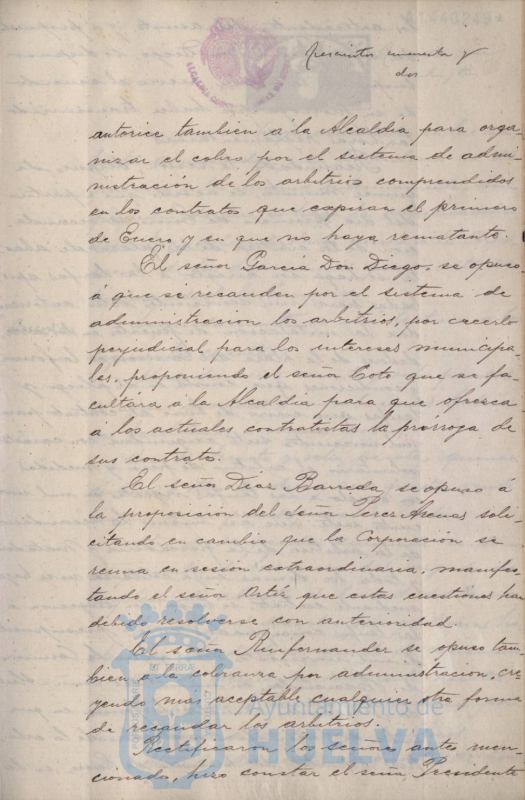 trescientos cincuenta y
dos
autorice tambien á la Alcaldia para orga-
nizar el cobro por el sistema de admi-
nistración de los arbitrios comprendidos
en los contratos que expiran el primero
de Enero y en que no haya rematante.
El señor Garcia Don Diego, se opuso
á que se recauden por el sistema de
administracion los arbitrios, por creerlo
perjudicial para los intereses municipa-
les, proponiendo el señor Coto que se fa-
cultára á la Alcaldia para que ofresca
á los actuales contratistas la prórroga de
sus contrato.
El señor Diaz Barreda, se opuso á
la proposición del señor Perez Arenas soli-
citando en cambio que la Corporación se
reuna en sesión extraordinaria, manifes-
tando el señor Ortiz que estas cuestiones han
debido resolverse con anterioridad.
El señor Ruifernandez se opuso tam-
bien á la cobranza por administracion, cre-
yendo mas aceptable cualquier otra forma
de recaudar los arbitrios.
Rectificaron los señores antes men-
cionado, hizo constar el señor Presidente
Ayuntamiento de
HUELVA